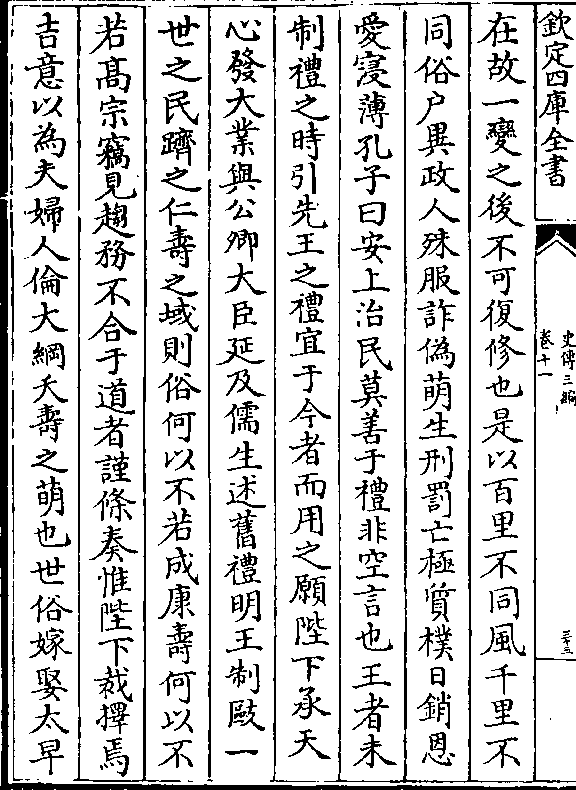 欽定四庫全書
史傳三編
卷十一
三十三
在故一變之後不可復修也是以百里不同風千里不
同俗户異政人殊服詐偽萌生刑罰亡極質樸日銷恩
愛寖薄孔子曰安上治民莫善于禮非空言也王者未
制禮之時引先王之禮宜于今者而用之願陛下承天
心發大業與公卿大臣延及儒生述舊禮明王制敺一
世之民躋之仁壽之域則俗何以不若成康壽何以不
若髙宗竊見趨務不合于道者謹條奏惟陛下裁擇焉
吉意以為夫婦人倫大綱夭壽之萌也世俗嫁娶太早